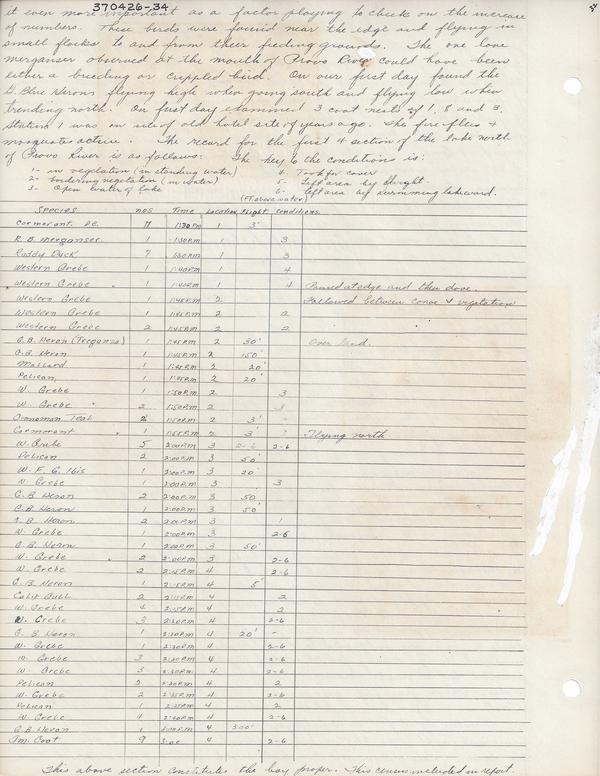 370426-34
it even more important as a factor playing to check on the increase
of numbers. These birds were found near the edge and flying in
small flocks to and from their feeding grounds. The one lone
merganser observed at the mouth of Provo River could have been
either a breeding or crippled bird. On our first day found the
G. Blue Herons flying high when going south and flying low when
trending north. On first day examined 3 coot nests of 1, 8 and 3.
Station 1 was on site of old hotel site of years ago. The fire flies +
mosquates active. The record for the first 4 section of the lake north
of Provo River is as follows: The key to the conditions is:
1- in vegetation (in standing water) 4. Took for cover
2- bordering vegetation (in water) 5- Left area by flight.
3- Open water of lake 6- Left area by swimming lakeward.
(Ft. above water)
Species nos Time Location Flight Conditions.
Cormorant. D.C. 11 1:30 PM 1 3'
R. B. Merganser. 1 1:30 PM 1 3
Ruddy Duck 7 1:30 PM 1 3
Western Grebe 1 1:40 PM 1 4
Western Grebe 1 1:40 PM 1 4 Paused at edge and then dove.
Western Grebe 1 1:45 PM 2 Followed between canoe & vegetation
Western Grebe 1 1:45 PM 2 2
Western Grebe 2 1:45 PM 2 2
G.B. Heron (Treganza) 1 1:45 PM 2 30' Over land.
G.B. Heron 1 1:45 PM 2 150'
Mallard 1 1:45 PM 2 20'
Pelican 1 1:45 PM 2 20'
W. Grebe 1 1:50 PM 2 3
W. Grebe 2 1:50 PM 2 3
Cinnamon Teal 2 1:50 PM 2 3'
Cormorant 1 1:55 PM 2 3' Flying north
W. Grebe 5 2:00 PM 3 2-6
Pelican 2 2:00 PM 3 50'
W. F. G. Ibis 1 2:00 PM 3 20'
W. Grebe 1 2:00 PM 3 3
G. B. Heron 2 2:00 PM 3 50'
G. B. Heron 1 2:00 PM 3 50'
G. B. Heron 2 2:00 PM 3 1
W. Grebe 1 2:00 PM 3 2-6
G. B. Heron 1 2:00 PM 3 50'
W. Grebe 2 2:00 PM 3 2-6
W. Grebe 2 2:15 PM 4 2-6
G. B. Heron 1 2:15 PM 4 5'
Calif Gull 2 2:15 PM 4 2
W. Grebe 4 2:15 PM 4 2
W. Grebe 3 2:20 PM 4 2-6
G. B. Heron 1 2:20 PM 4 20' -
W. Grebe 1 2:20 PM 4 2-6
W. Grebe 3 2:20 PM 4 2-6
W. Grebe 3 2:20 PM 4 2-6
Pelican 2 2:20 PM 4 2
W. Grebe 2 2:35 PM 4 2-6
Pelican 1 2:35 PM 4 2
W. Grebe 4 2:40 PM 4 2-6
G.B. Heron 1 PM 4 300'
Am. Coot 9 3:00 4 2-6
This above section constitutes the bay proper. This census included in report.